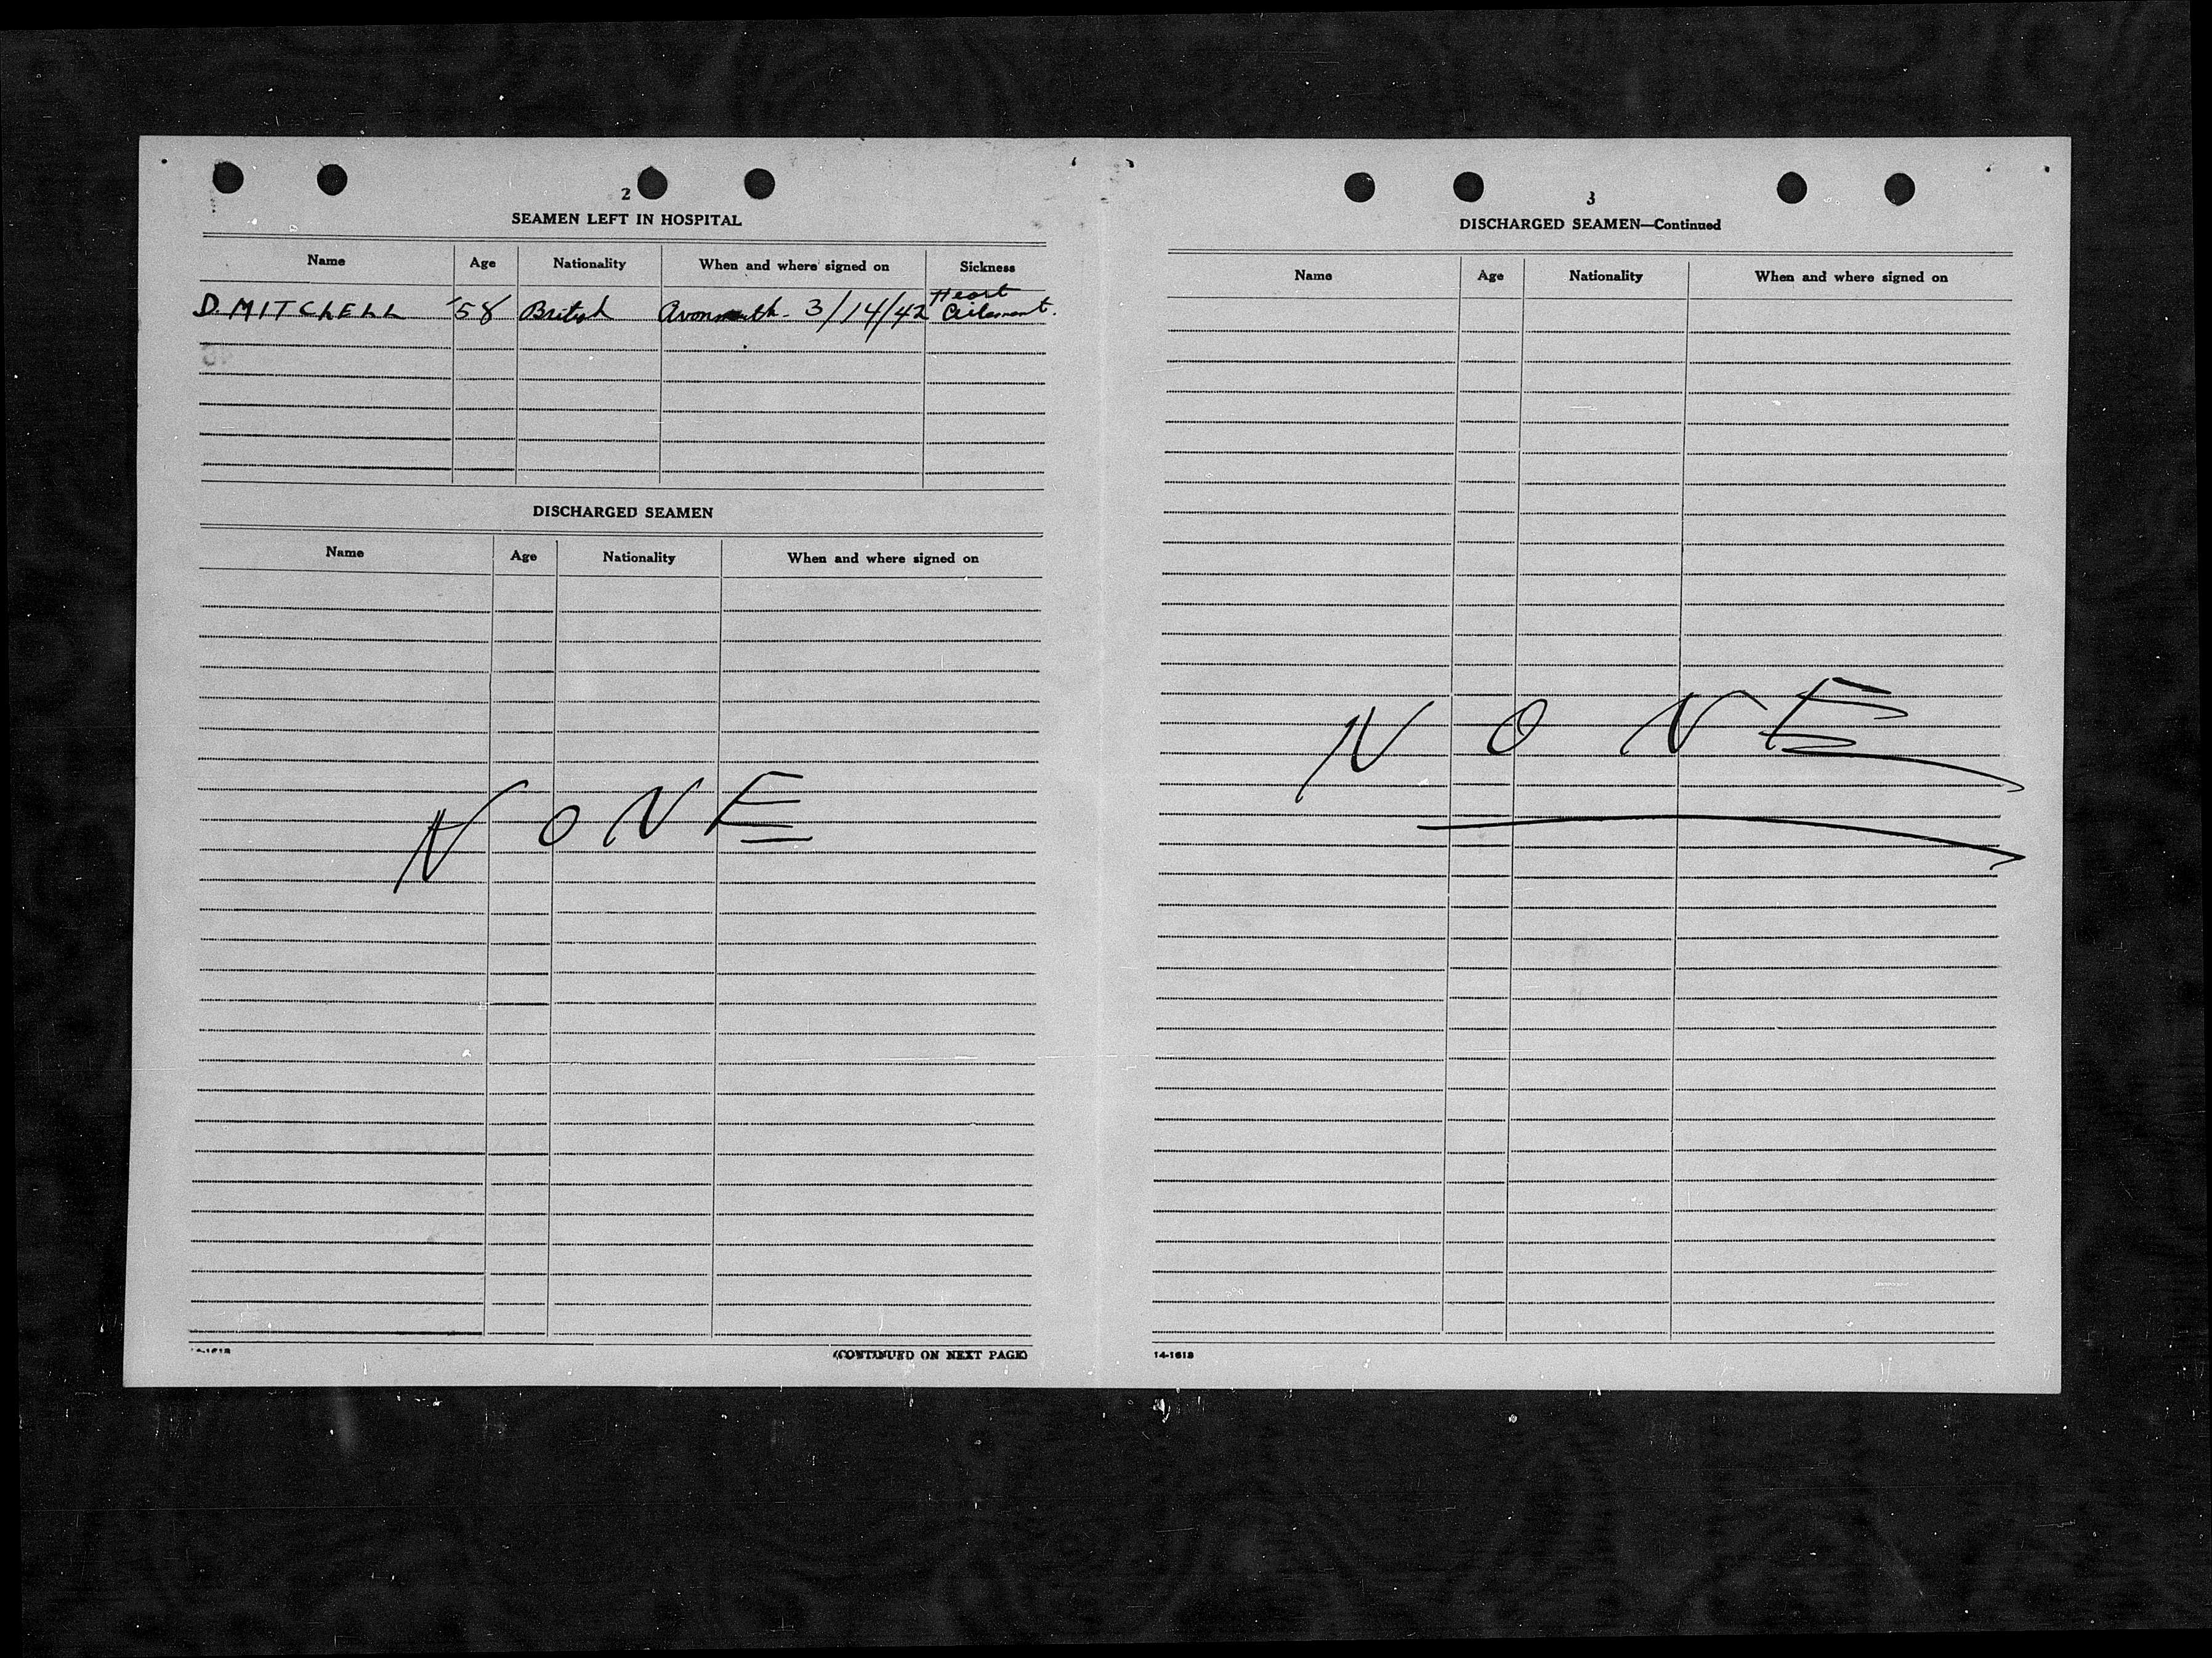 2
SEAMEN LEFT IN HOSPITAL
Name Age Nationality When and where signed on Sickness
D. MITCHELL 58 British Avonmouth - 3/14/42 Heart Ailement.
DISCHARGED SEAMEN
Name Age Nationality When and where signed on
NONE
14-1613
(CONTINUED ON NEXT PAGE)
3
DISCHARGED SEAMEN—Continued
Name Age Nationality When and where signed on
NONE
14-1613